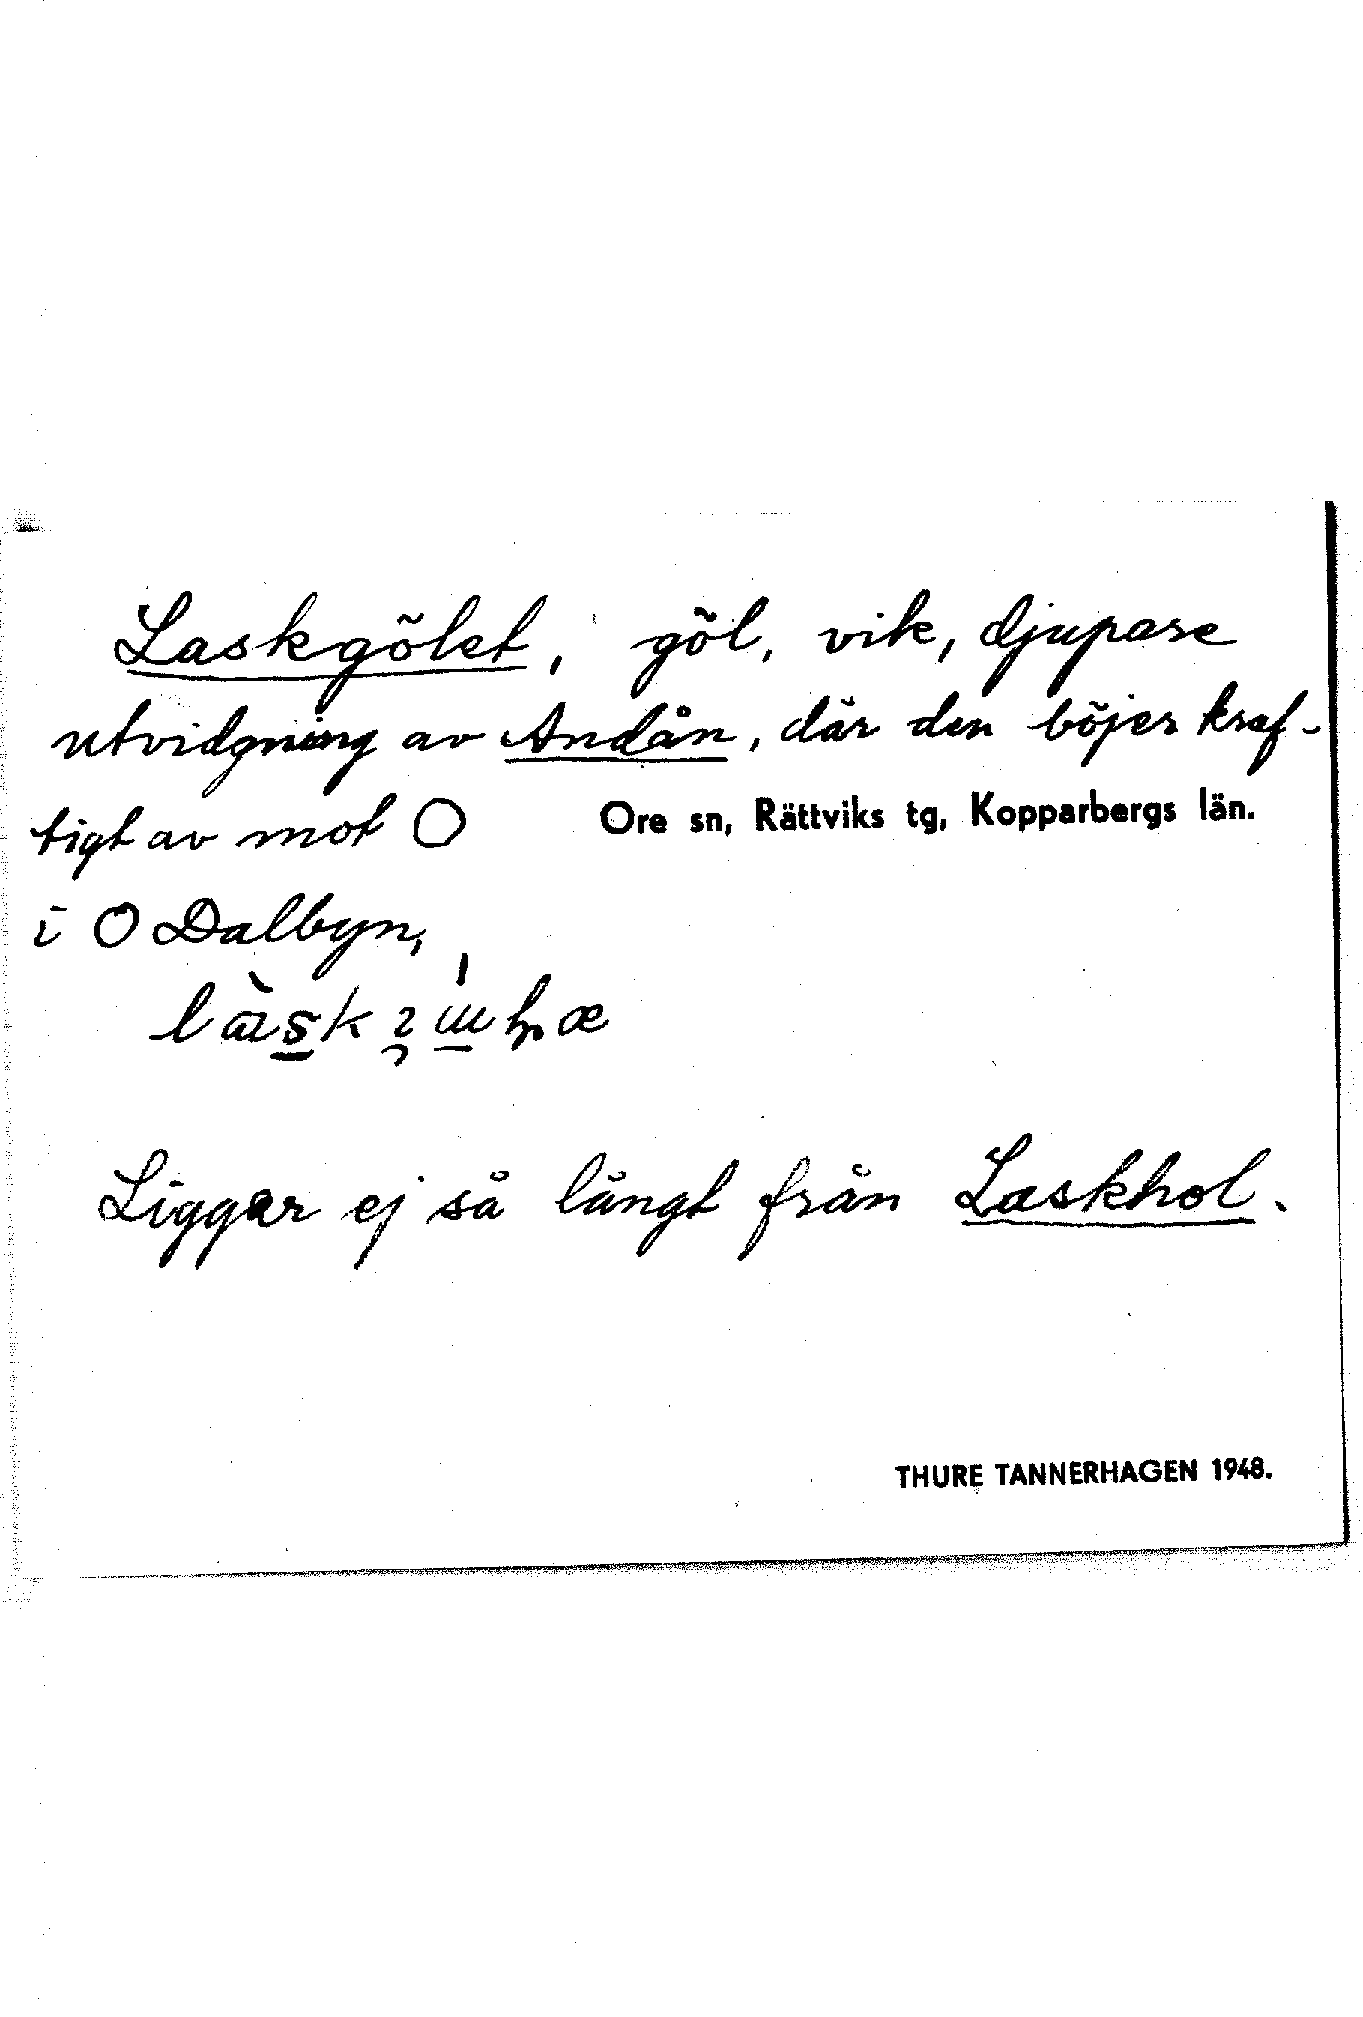 Laskgölet, göl, vik, djupare
utvidgning av Andån, där den böjer kraf-
tigt av mot O
Ore sn, Rättviks tg, Kopparbergs län.
i O Dalbyn,
Liggar ej så långt från Laskhol.
THURE TANNERHAGEN 1948.